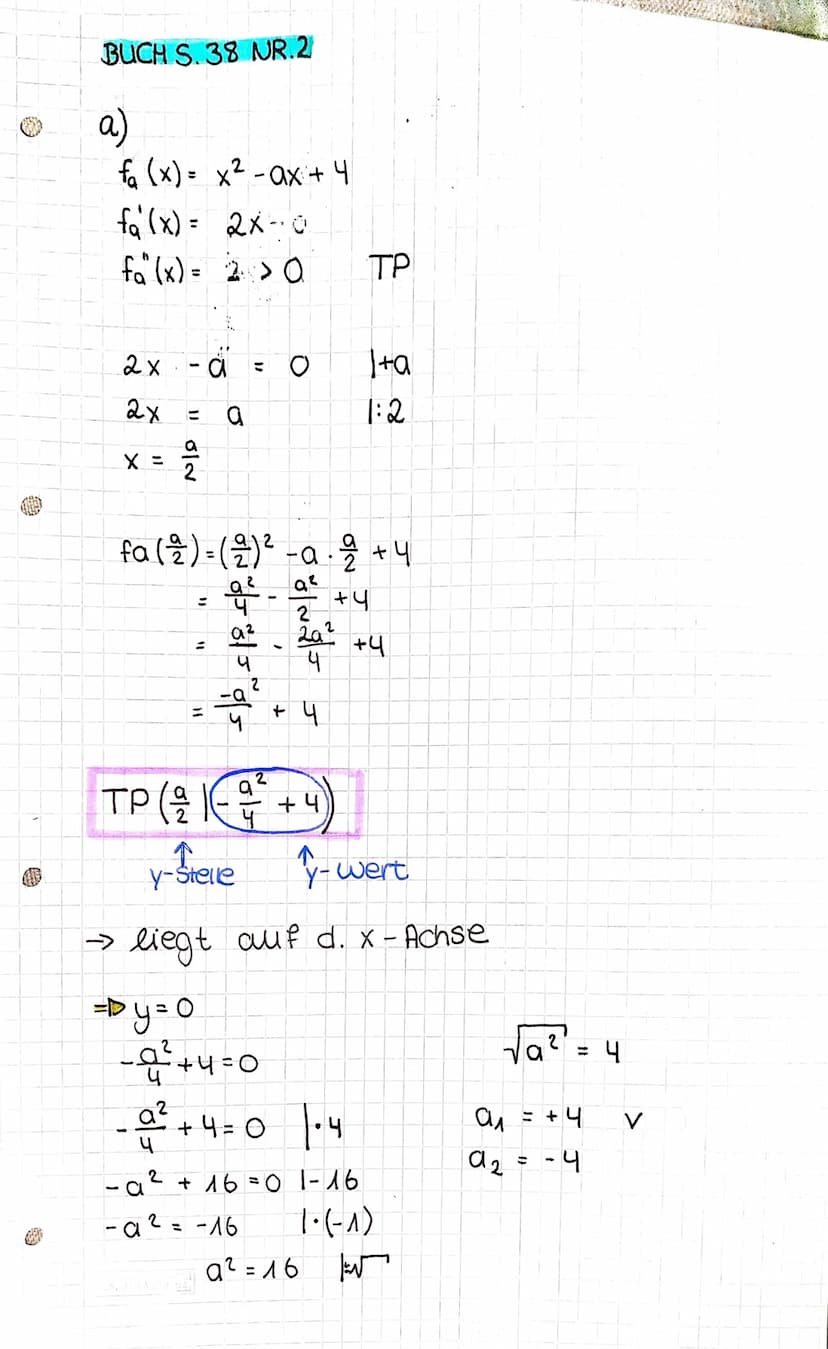 BUCH S. 38 NR. 2
a)
fₐ(x) = x² - ax + 4
fₐ'(x) = 2x -
fₐ''(x) = 2 > 0 TP
2x - a = 0 |+a
2x = a |:2
x = a/2
fa(a/2) = (a/2)² - a · a/2 + 4
= a²/4 - a²/2 + 4
= a²/4 - 2a²/4 + 4
= -a²/4 + 4
TP (a/2 | - a²/4 + 4)
y-Stelle y-Wert
→ liegt auf d. x-Achse
⇒ y = 0
-a²/4 + 4 = 0
-a²/4 + 4 = 0 |·4
-a² + 16 = 0 |-16
-a² = -16 |·(-1)
a² = 16 |√
√a² = 4
a₁ = +4 v
a₂ = -4